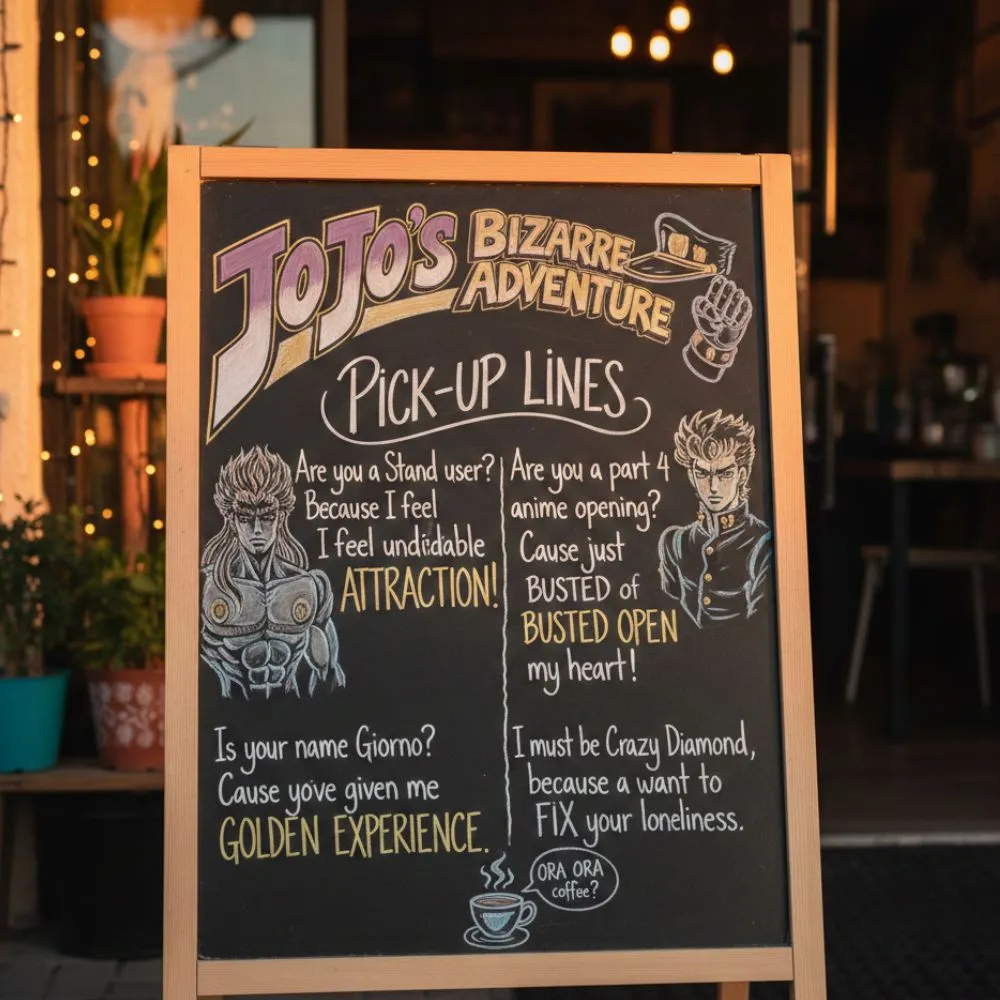 JOJO'S BIZARRE
ADVENTURE
PICK-UP LINES
Are you a Stand user?
Because I feel
I feel undidable
ATTRACTION!
Are you a part 4
anime opening?
Cause just
BUSTED of
BUSTED OPEN
my heart!
Is your name Giorno?
Cause yove given me
GOLDEN EXPERIENCE.
I must be Crazy Diamond,
because a want to
FIX your loneliness.
ORA ORA
coffee?